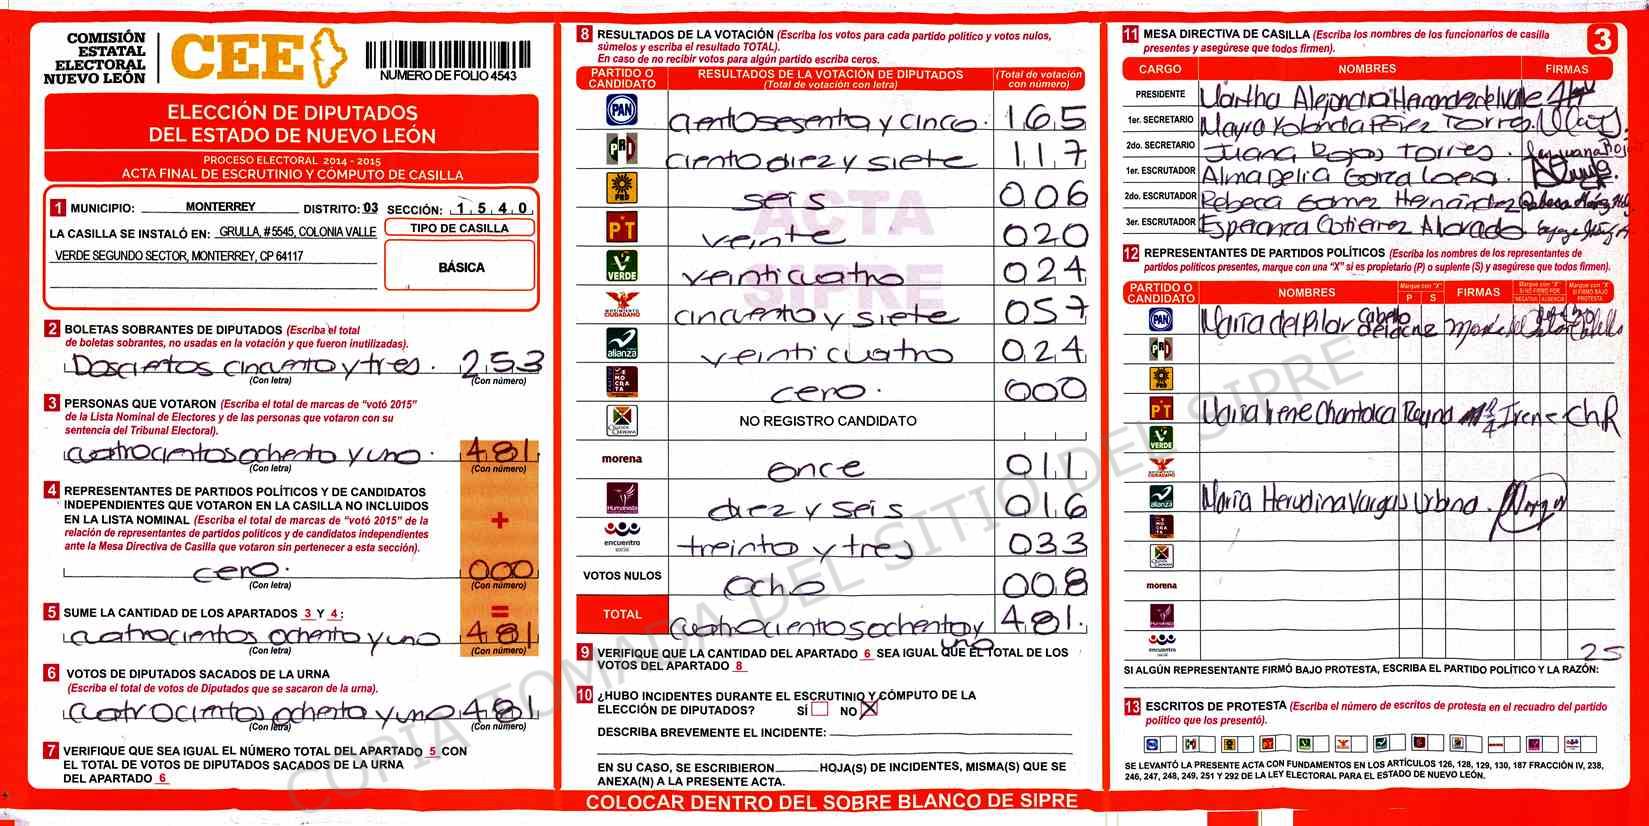 COMISIÓN
ESTATAL
ELECTORAL
NUEVO LEÓN
CEE
NUMERO DE FOLIO 4543
ELECCIÓN DE DIPUTADOS
DEL ESTADO DE NUEVO LEÓN
PROCESO ELECTORAL 2014 - 2015
ACTA FINAL DE ESCRUTINIO Y CÓMPUTO DE CASILLA
1 MUNICIPIO: MONTERREY DISTRITO: 03 SECCIÓN: 1540
LA CASILLA SE INSTALÓ EN: GRULLA, # 5545, COLONIA VALLE
VERDE SEGUNDO SECTOR, MONTERREY, CP 64117
TIPO DE CASILLA
BÁSICA
2 BOLETAS SOBRANTES DE DIPUTADOS (Escriba el total
de boletas sobrantes, no usadas en la votación y que fueron inutilizadas).
Doscientos cincuenta y tres. 253
(Con letra) (Con número)
3 PERSONAS QUE VOTARON (Escriba el total de marcas de "votó 2015"
de la Lista Nominal de Electores y de las personas que votaron con su
sentencia del Tribunal Electoral).
cuatrocientos ochenta y uno. 481
(Con letra) (Con número)
4 REPRESENTANTES DE PARTIDOS POLÍTICOS Y DE CANDIDATOS
INDEPENDIENTES QUE VOTARON EN LA CASILLA NO INCLUIDOS
EN LA LISTA NOMINAL (Escriba el total de marcas de "votó 2015" de la
relación de representantes de partidos políticos y de candidatos independientes
ante la Mesa Directiva de Casilla que votaron sin pertenecer a esta sección).
+
cero. 000
(Con letra) (Con número)
=
5 SUME LA CANTIDAD DE LOS APARTADOS 3 Y 4:
cuatrocientos ochenta y uno 481
(Con letra) (Con número)
6 VOTOS DE DIPUTADOS SACADOS DE LA URNA
(Escriba el total de votos de Diputados que se sacaron de la urna).
cuatrocientos ochenta y uno 481
(Con letra) (Con número)
7 VERIFIQUE QUE SEA IGUAL EL NÚMERO TOTAL DEL APARTADO 5 CON
EL TOTAL DE VOTOS DE DIPUTADOS SACADOS DE LA URNA
DEL APARTADO 6
8 RESULTADOS DE LA VOTACIÓN (Escriba los votos para cada partido político y votos nulos,
súmelos y escriba el resultado TOTAL).
En caso de no recibir votos para algún partido escriba ceros.
PARTIDO O CANDIDATO RESULTADOS DE LA VOTACIÓN DE DIPUTADOS (Total de votación con letra) (Total de votación con número)
PAN cientosesenta y cinco. 165
PRD ciento diez y siete 117
PRD seis 006
PT veinte 020
VERDE veinticuatro 024
MOVIMIENTO CIUDADANO cincuenta y siete 057
alianza veinticuatro 024
cero. 000
NO REGISTRO CANDIDATO
morena once 011
Humanista diez y seis 016
encuentro social treinta y tres 033
VOTOS NULOS ocho 008
TOTAL cuatrocientos ochenta y uno 481.
ACTA
SIPRE
9 VERIFIQUE QUE LA CANTIDAD DEL APARTADO 6 SEA IGUAL QUE EL TOTAL DE LOS
VOTOS DEL APARTADO 8
10 ¿HUBO INCIDENTES DURANTE EL ESCRUTINIO Y CÓMPUTO DE LA
ELECCIÓN DE DIPUTADOS? SÍ NO X
DESCRIBA BREVEMENTE EL INCIDENTE:
EN SU CASO, SE ESCRIBIERON HOJA(S) DE INCIDENTES, MISMA(S) QUE SE
ANEXA(N) A LA PRESENTE ACTA.
COLOCAR DENTRO DEL SOBRE BLANCO DE SIPRE
11 MESA DIRECTIVA DE CASILLA (Escriba los nombres de los funcionarios de casilla
presentes y asegúrese que todos firmen).
3
CARGO NOMBRES FIRMAS
PRESIDENTE Martha Alejandra Hernandez del Valle
1er. SECRETARIO Mayra Yolanda Pérez Torres.
2do. SECRETARIO Juana Rojas Torres.
1er. ESCRUTADOR Alma Delia Garza
2do. ESCRUTADOR Rebeca Gomez Hernández
3er. ESCRUTADOR Esperanza Gutierrez Alvarado
12 REPRESENTANTES DE PARTIDOS POLÍTICOS (Escriba los nombres de los representantes de
partidos políticos presentes, marque con una "X" si es propietario (P) o suplente (S) y asegúrese que todos firmen).
PARTIDO O CANDIDATO NOMBRES Marque con "X" P S FIRMAS Marque con "X" SI NO FIRMÓ POR NEGATIVA AUSENCIA Marque con "X" SI FIRMÓ BAJO PROTESTA
PAN Maria del Pilar Cabello
PRD
PRD
PT Maria Irene Chantaca Reyna Irene Ch R
VERDE
MOVIMIENTO CIUDADANO
alianza Maria Herudina Vargas Urbina.
morena
Humanista
encuentro social
25
SI ALGÚN REPRESENTANTE FIRMÓ BAJO PROTESTA, ESCRIBA EL PARTIDO POLÍTICO Y LA RAZÓN:
13 ESCRITOS DE PROTESTA (Escriba el número de escritos de protesta en el recuadro del partido
político que los presentó).
SE LEVANTÓ LA PRESENTE ACTA CON FUNDAMENTOS EN LOS ARTÍCULOS 126, 128, 129, 130, 187 FRACCIÓN IV, 238,
246, 247, 248, 249, 251 Y 292 DE LA LEY ELECTORAL PARA EL ESTADO DE NUEVO LEÓN.
COPIA TOMADA DEL SITIO DEL SIPRE